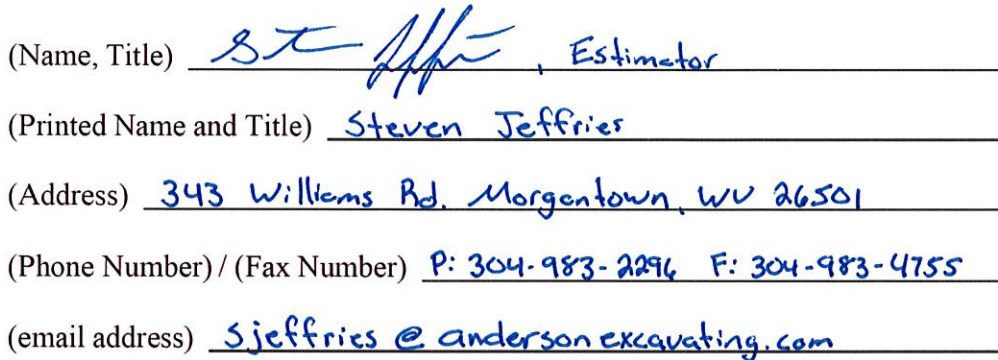 (Name, Title) , Estimator
(Printed Name and Title) Steven Jeffries
(Address) 343 Williams Rd. Morgantown, WV 26501
(Phone Number) / (Fax Number) P: 304-983-2296 F: 304-983-4755
(email address) Sjeffries @ andersonexcavating.com